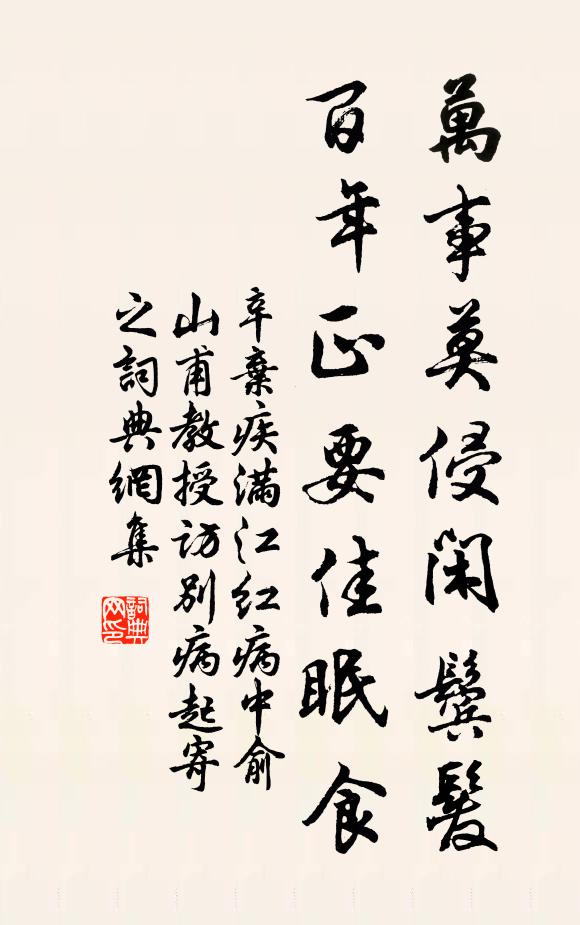 萬事莫侵閑鬢髮
百年正要佳眠食
辛棄疾滿江红病中俞
山甫教授访别病起寄
之詞典網集
詞典网印